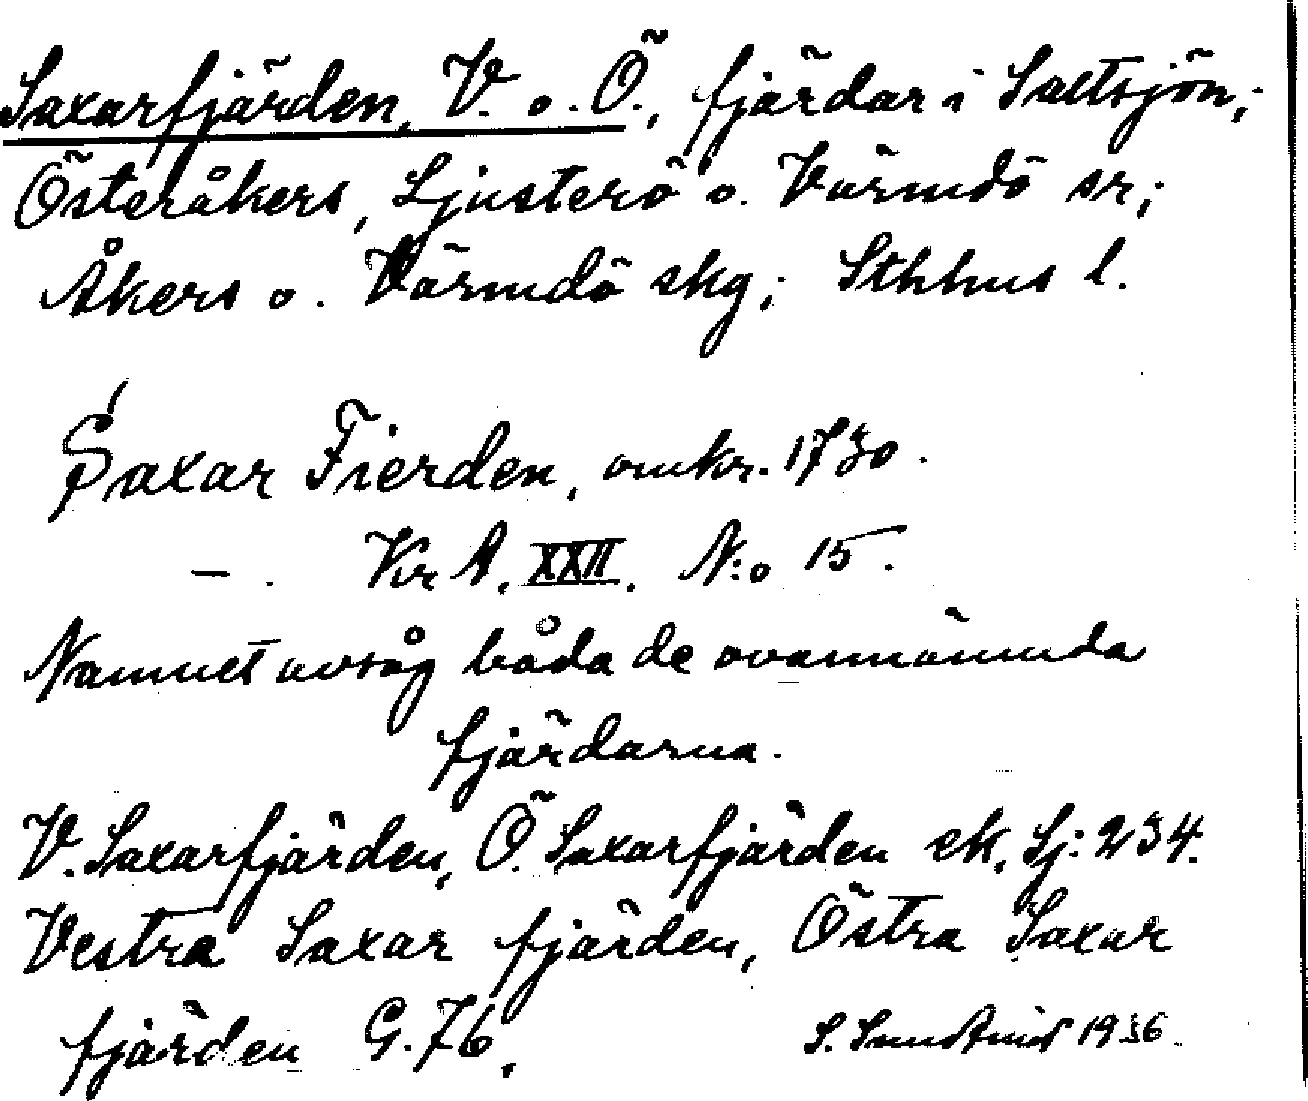 Saxarfjärden, V. o. Ö., fjärdar i Saltsjön;
Österåkers, Ljusterö o. Värmdö sr;
Åkers o. Värmdö skg; Sthhus l.
Saxar Fierden, omkr. 1730.
— . Kr A. XXII. N:o 15.
Namnet avsåg båda de ovannämnda
fjärdarna.
V. Saxarfjärden, Ö. Saxarfjärden ek. Lj: 234.
Vestra Saxar fjärden, Östra Saxar
fjärden G. 76.
S. 1936.